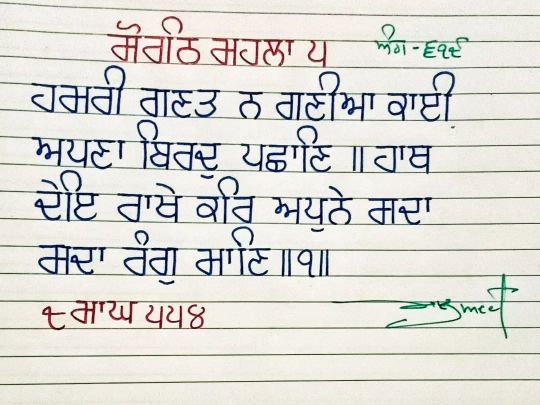 ਸੋਰਠਿ ਮਹਲਾ ੫ ਅੰਗ - ੬੧੯
ਹਮਰੀ ਗਣਤ ਨ ਗਣੀਆ ਕਾਈ
ਅਪਣਾ ਬਿਰਦੁ ਪਛਾਣਿ ॥ ਹਾਥ
ਦੇਇ ਰਾਖੇ ਕਰਿ ਅਪੁਨੇ ਸਦਾ
ਸਦਾ ਰੰਗੁ ਮਾਣਿ ॥੧॥
੯ ਮਾਘ ੫੫੪